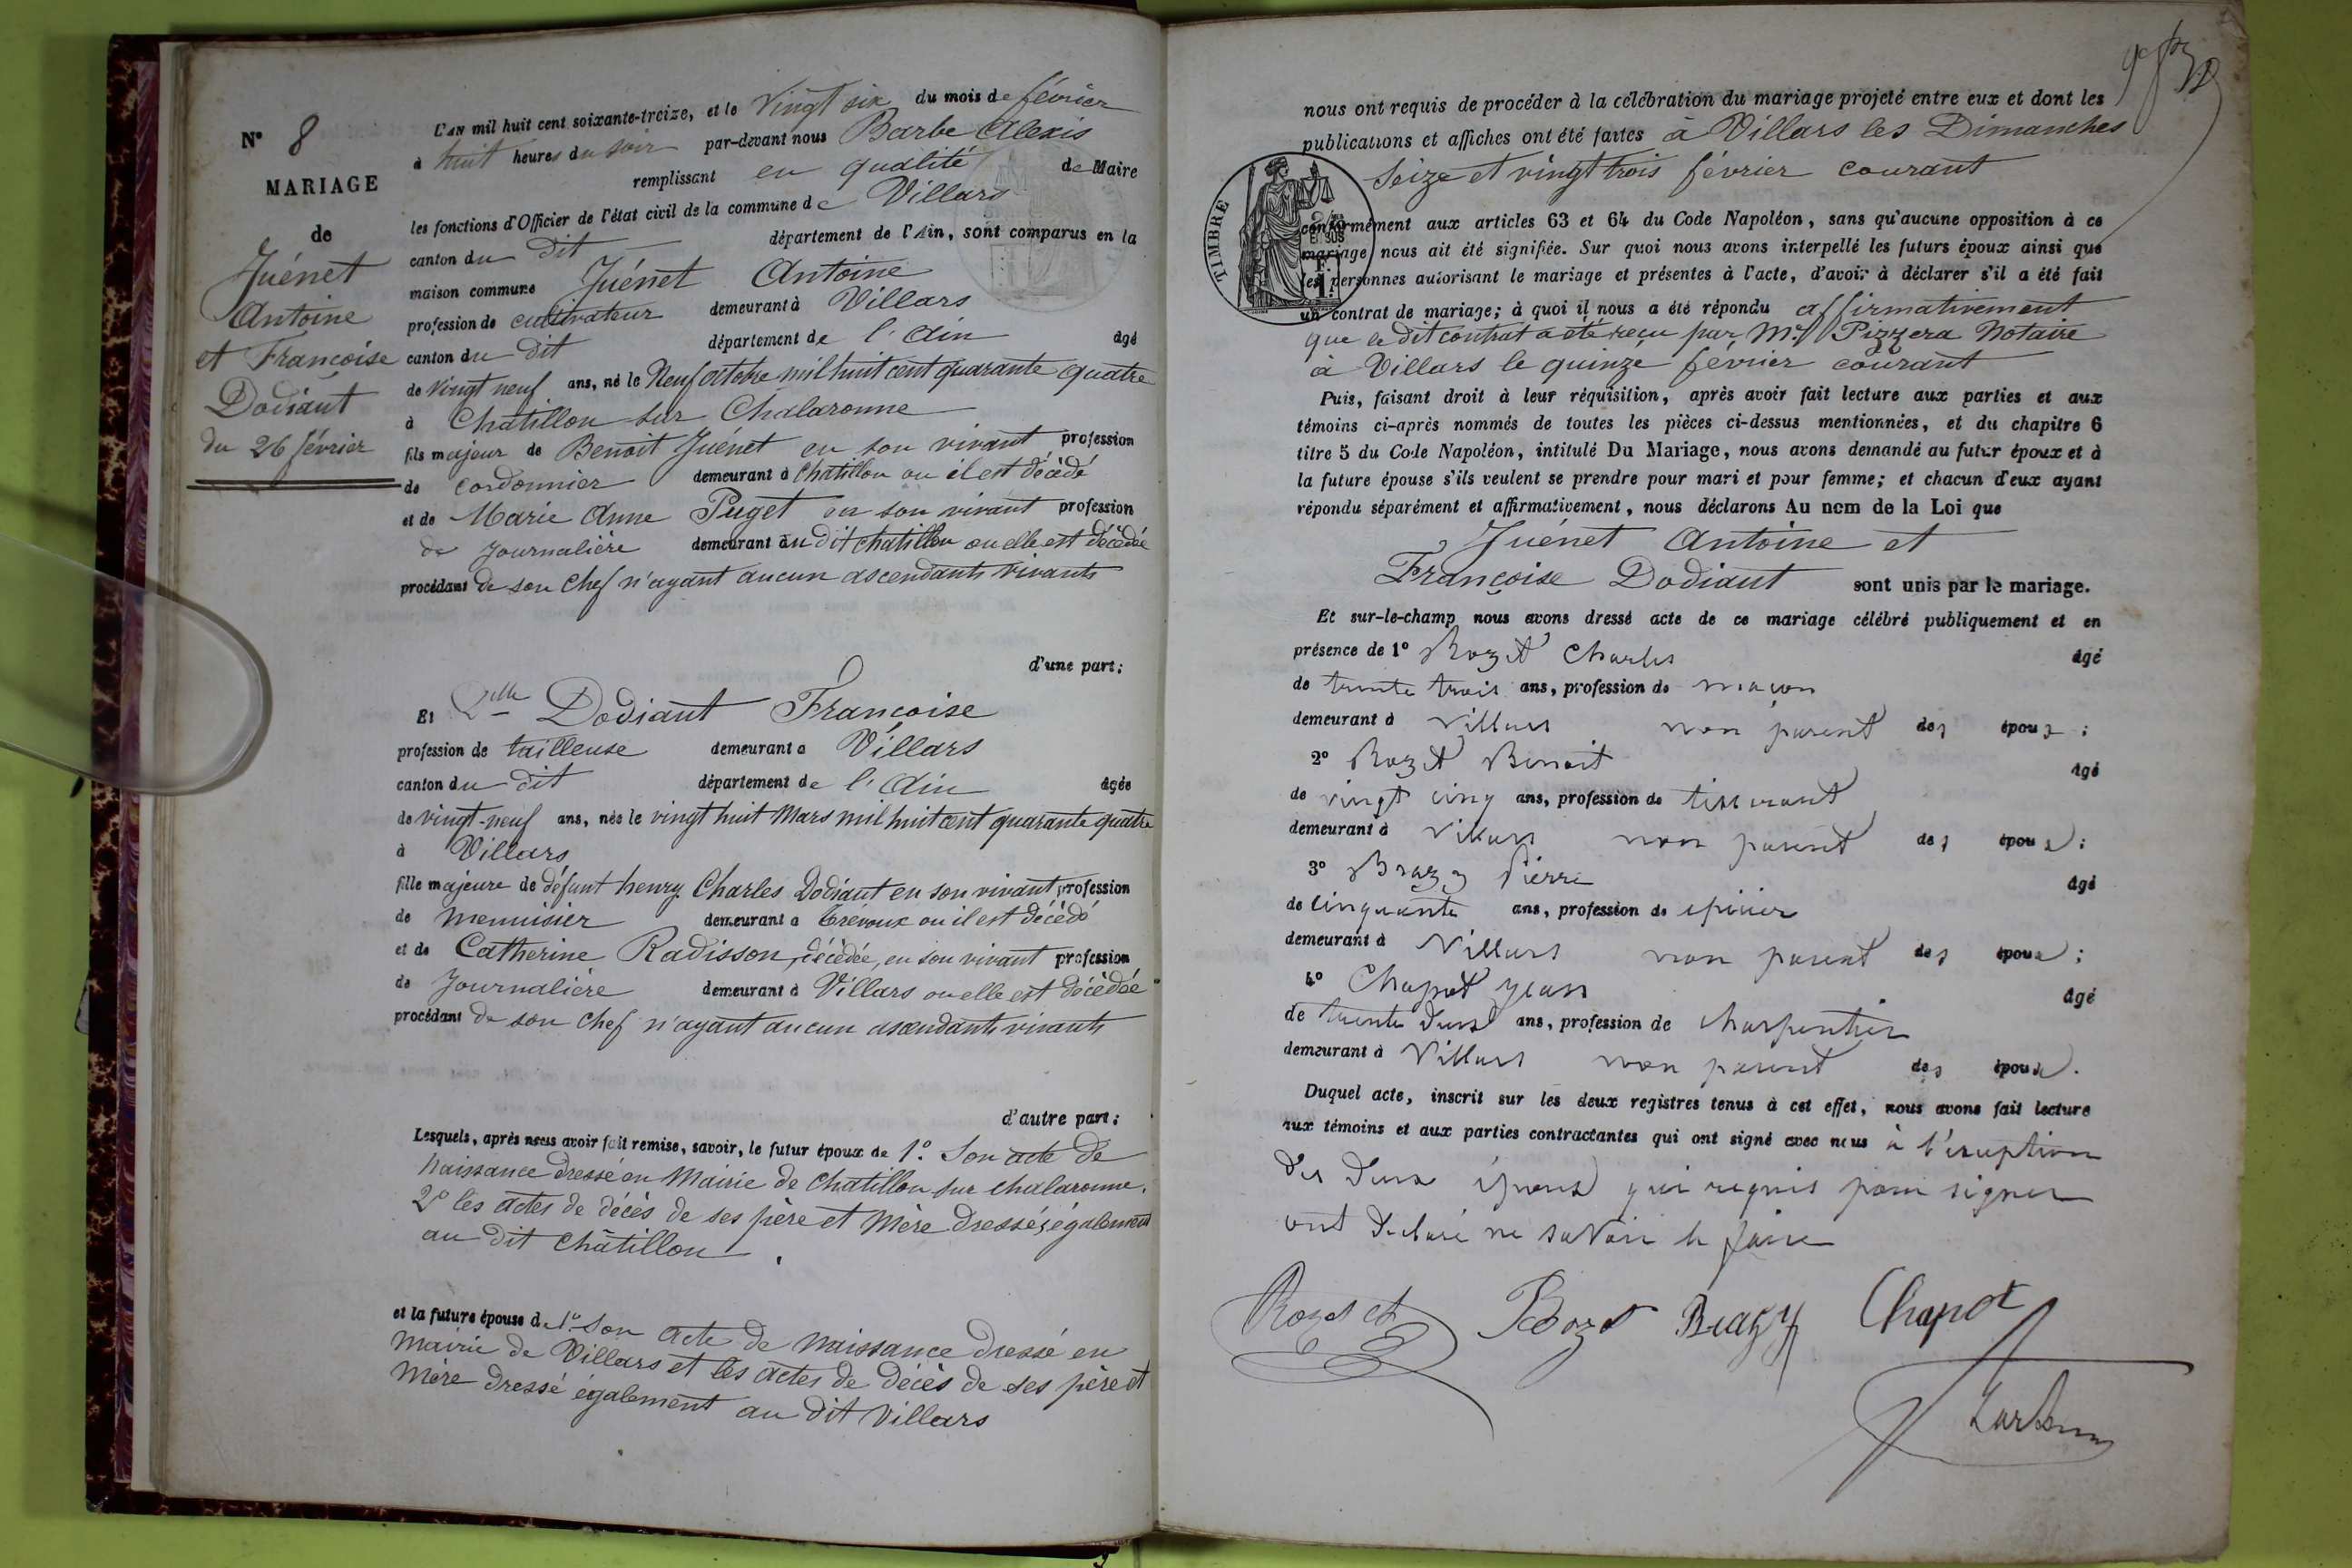 N° 8
MARIAGE
de
Juénet
Antoine
et Françoise
Dodiant
du 26 février
L'AN mil huit cent soixante-treize, et le Vingt six du mois de février
à huit heures du soir par-devant nous Barbe Alexis
remplissant en qualité de Maire
les fonctions d'Officier de l'état civil de la commune de Villars
canton du dit département de l'Ain, sont comparus en la
maison commune Juénet Antoine
profession de cultivateur demeurant à Villars
canton du dit département de l'Ain âgé
de vingt neuf ans, né le Neuf octobre mil huit cent quarante quatre
à Chatillon sur Chalaronne
fils majeur de Benoit Juénet en son vivant profession
de cordonnier demeurant à Chatillon ou il est décédé
et de Marie Anne Puget en son vivant profession
de Journalière demeurant au dit chatillon ou elle est décédée
procédant de son chef n'ayant aucun ascendants vivants
d'une part;
Et Dlle Dodiant Françoise
profession de tailleuse demeurant à Villars
canton du dit département de l'Ain âgée
de vingt-neuf ans, née le vingt huit Mars mil huit cent quarante quatre
à Villars
fille majeure de défunt henry Charles Dodiant en son vivant profession
de Menuisier demeurant à Trévoux ou il est décédé
et de Catherine Radisson, décédée, en son vivant profession
de Journalière demeurant à Villars ou elle est décédée
procédant de son chef n'ayant aucun ascendants vivants
d'autre part;
Lesquels, après nous avoir fait remise, savoir, le futur époux de 1° Son acte de
Naissance dressé en Mairie de Chatillon sur chalaronne.
2° les actes de décès de ses père et Mère dressés également
au dit Châtillon.
et la future épouse de 1° Son acte de Naissance dressé en
Mairie de Villars et les actes de décès de ses père et
Mère dressé également au dit Villars
nous ont requis de procéder à la célébration du mariage projeté entre eux et dont les
publications et affiches ont été faites à Villars les Dimanches
Seize et vingt trois février courant
TIMBRE
conformément aux articles 63 et 64 du Code Napoléon, sans qu'aucune opposition à ce
mariage nous ait été signifiée. Sur quoi nous avons interpellé les futurs époux ainsi que
les personnes autorisant le mariage et présentes à l'acte, d'avoir à déclarer s'il a été fait
un contrat de mariage; à quoi il nous a été répondu affirmativement
que le dit contrat a été reçu par Me Pizzera Notaire
à Villars le quinze février courant
Puis, faisant droit à leur réquisition, après avoir fait lecture aux parties et aux
témoins ci-après nommés de toutes les pièces ci-dessus mentionnées, et du chapitre 6
titre 5 du Code Napoléon, intitulé Du Mariage, nous avons demandé au futur époux et à
la future épouse s'ils veulent se prendre pour mari et pour femme; et chacun d'eux ayant
répondu séparément et affirmativement, nous déclarons Au nom de la Loi que
Juénet Antoine et
Françoise Dodiant sont unis par le mariage.
Et sur-le-champ nous avons dressé acte de ce mariage célébré publiquement et en
présence de 1° Rozet Charles âgé
de trente trois ans, profession de maçon
demeurant à Villars non parent des époux;
2° Rozet Benoit âgé
de vingt cinq ans, profession de tisserant
demeurant à Villars non parent des époux;
3° Brazy Pierre âgé
de cinquante ans, profession de épicier
demeurant à Villars non parent des époux;
4° Chapot Jean âgé
de trente deux ans, profession de charpentier
demeurant à Villars non parent des époux.
Duquel acte, inscrit sur les deux registres tenus à cet effet, nous avons fait lecture
aux témoins et aux parties contractantes qui ont signé avec nous à l'exception
des deux époux qui requis pour signer
ont déclaré ne savoir le faire
Rozet ch B Rozet Brazy Chapot